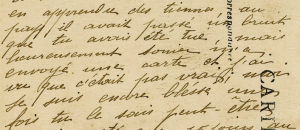 en apprendre des tiennes au
pays il avait passé un bruit
que tu avais été tué mais
heureusement Sonier m'a
envoyé une carte et j'ai
vu que c'était pas vrai moi
je suis encore blessé une
fois tu le sais peut-être
au
CARTE